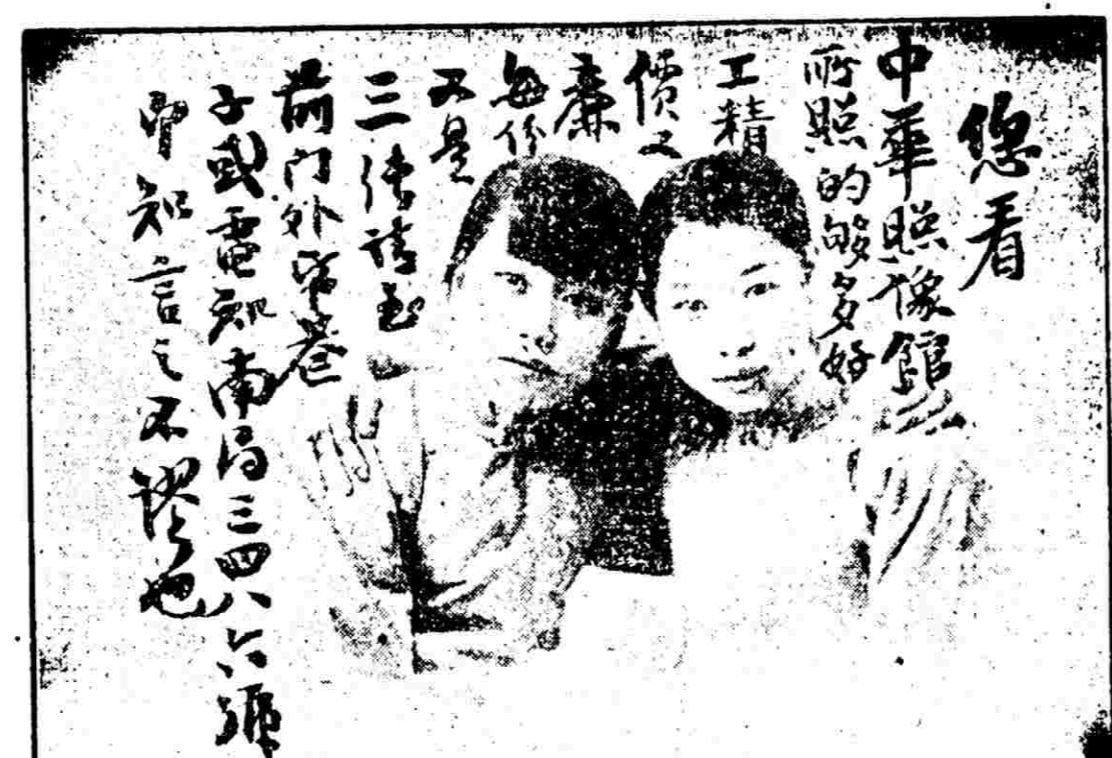 您看
中華照像館
所照的够多好
工精
價又
廉
每份
又是
三張請到
前门外巷
子或電知南局三四八六號
知言之不謬也